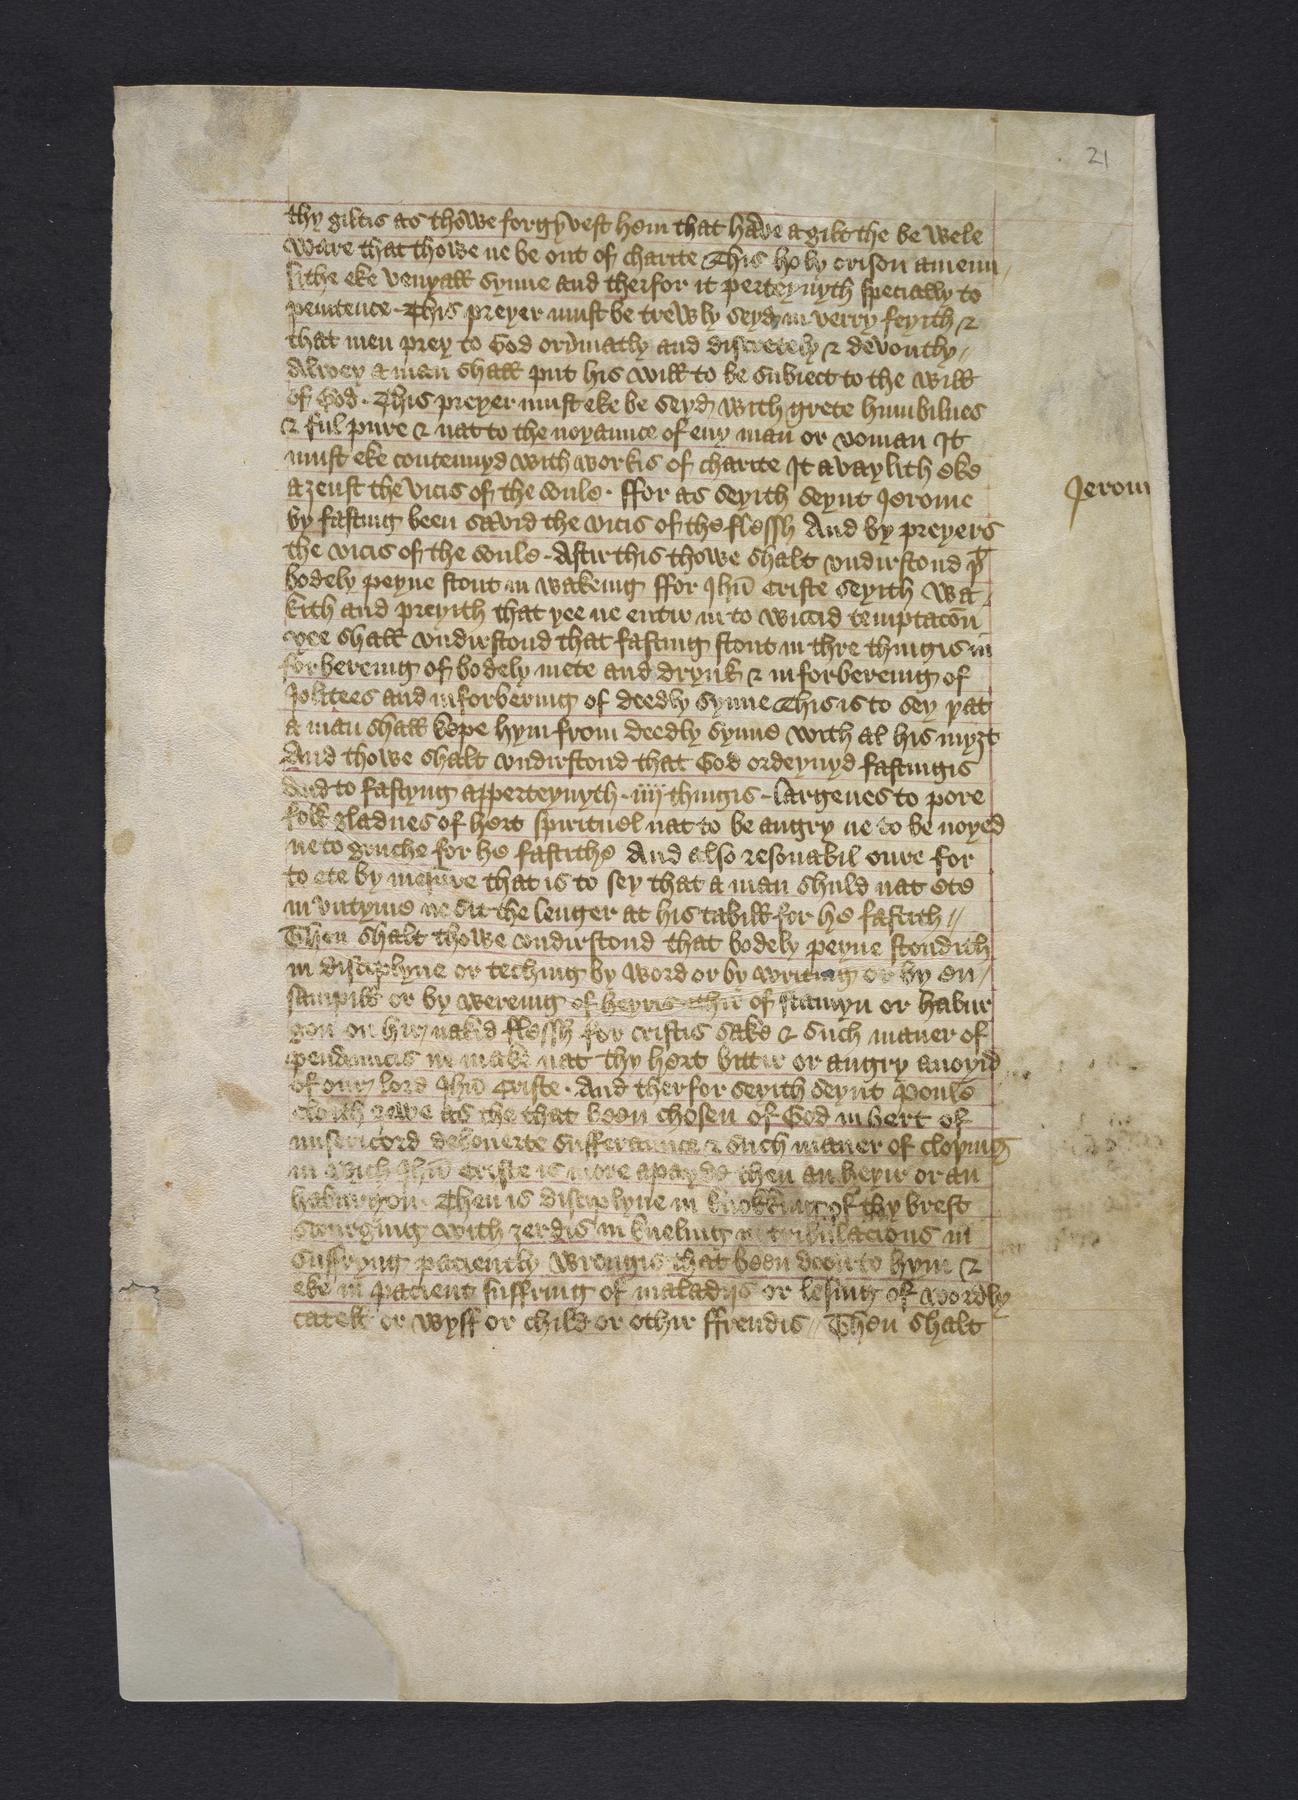 21
thy giltis as thowe forgyvest hem that have a gilt the be wele
ware that thowe ne be out of charite This holy orison amenu
sithe eke venyall synne and therfor it perteynyth specially to
penitence · This preyer must be trewly seyd in verry feyith &
that men prey to God ordinatly and discretely & devoutly //
Alwey a man shall put his will to be subiect to the will
of God · This preyer must eke be seyd with grete humbilnes
& ful pure & nat to the noyaunce of eny man or woman It
must eke contennyd with workis of charite It avaylith eke
aȝenst the vicis of the soule · ffor as seyith seynt Jerome
Jerom
by fasting been savid the vicis of the flessh And by preyers
the vicis of the soule · Aftir this thowe shalt undirstond þt
bodely peyne stont in wakeing ffor Jhū Criste seyith wa
kith and preyith that yee ne entir in to wiccid temptacōn
yee shall undirstond that fasting stont in thre thingis in
forbereing of bodely mete and drynk & in forbereing of
Jolitees and in forbering of deedly synne This is to sey þat
a man shall kepe hym from deedly synne with al his myȝt
And thowe shalt undirstond that God ordeynyd fastingis
And to fastyng apperteynyth · iiij thingis · largenes to pore
folk gladnes of hert spirituel nat to be angry ne to be noyed
ne to gruche for he fastithe And also resonabil oure for
to ete by mesure that is to sey that a man shuld nat ete
in untyme ne sit the lenger at his tabill for he fastith //
Then shalt thowe undirstond that bodely peyne stondith
in disciplyne or teching by word or by writing or by en
sampill or by wereing of heyris othir of stamyn or habur
gon on hir nakid flessh for cristis sake & such maner of
penauncis ne make nat thy hert bittir or angry anoyid
of oure lord Jhū Criste · And therfor seyith seynt Poule
cloith ȝowe as the that been chosen of God in hert of
misericord debonerte sufferaunce & such maner of cloying
in wich Jhū Criste is more apayde then an heyir or an
haburgon · Then is disciplyne in knokking of thy brest
scourging with ȝerdis in kneling in tribulacions in
suffryng paciently wrongis that been doon to hym &
eke in pacient suffring of maladijs or lesing of wordly
catell or wyff or child or othir ffrendis // Then shalt